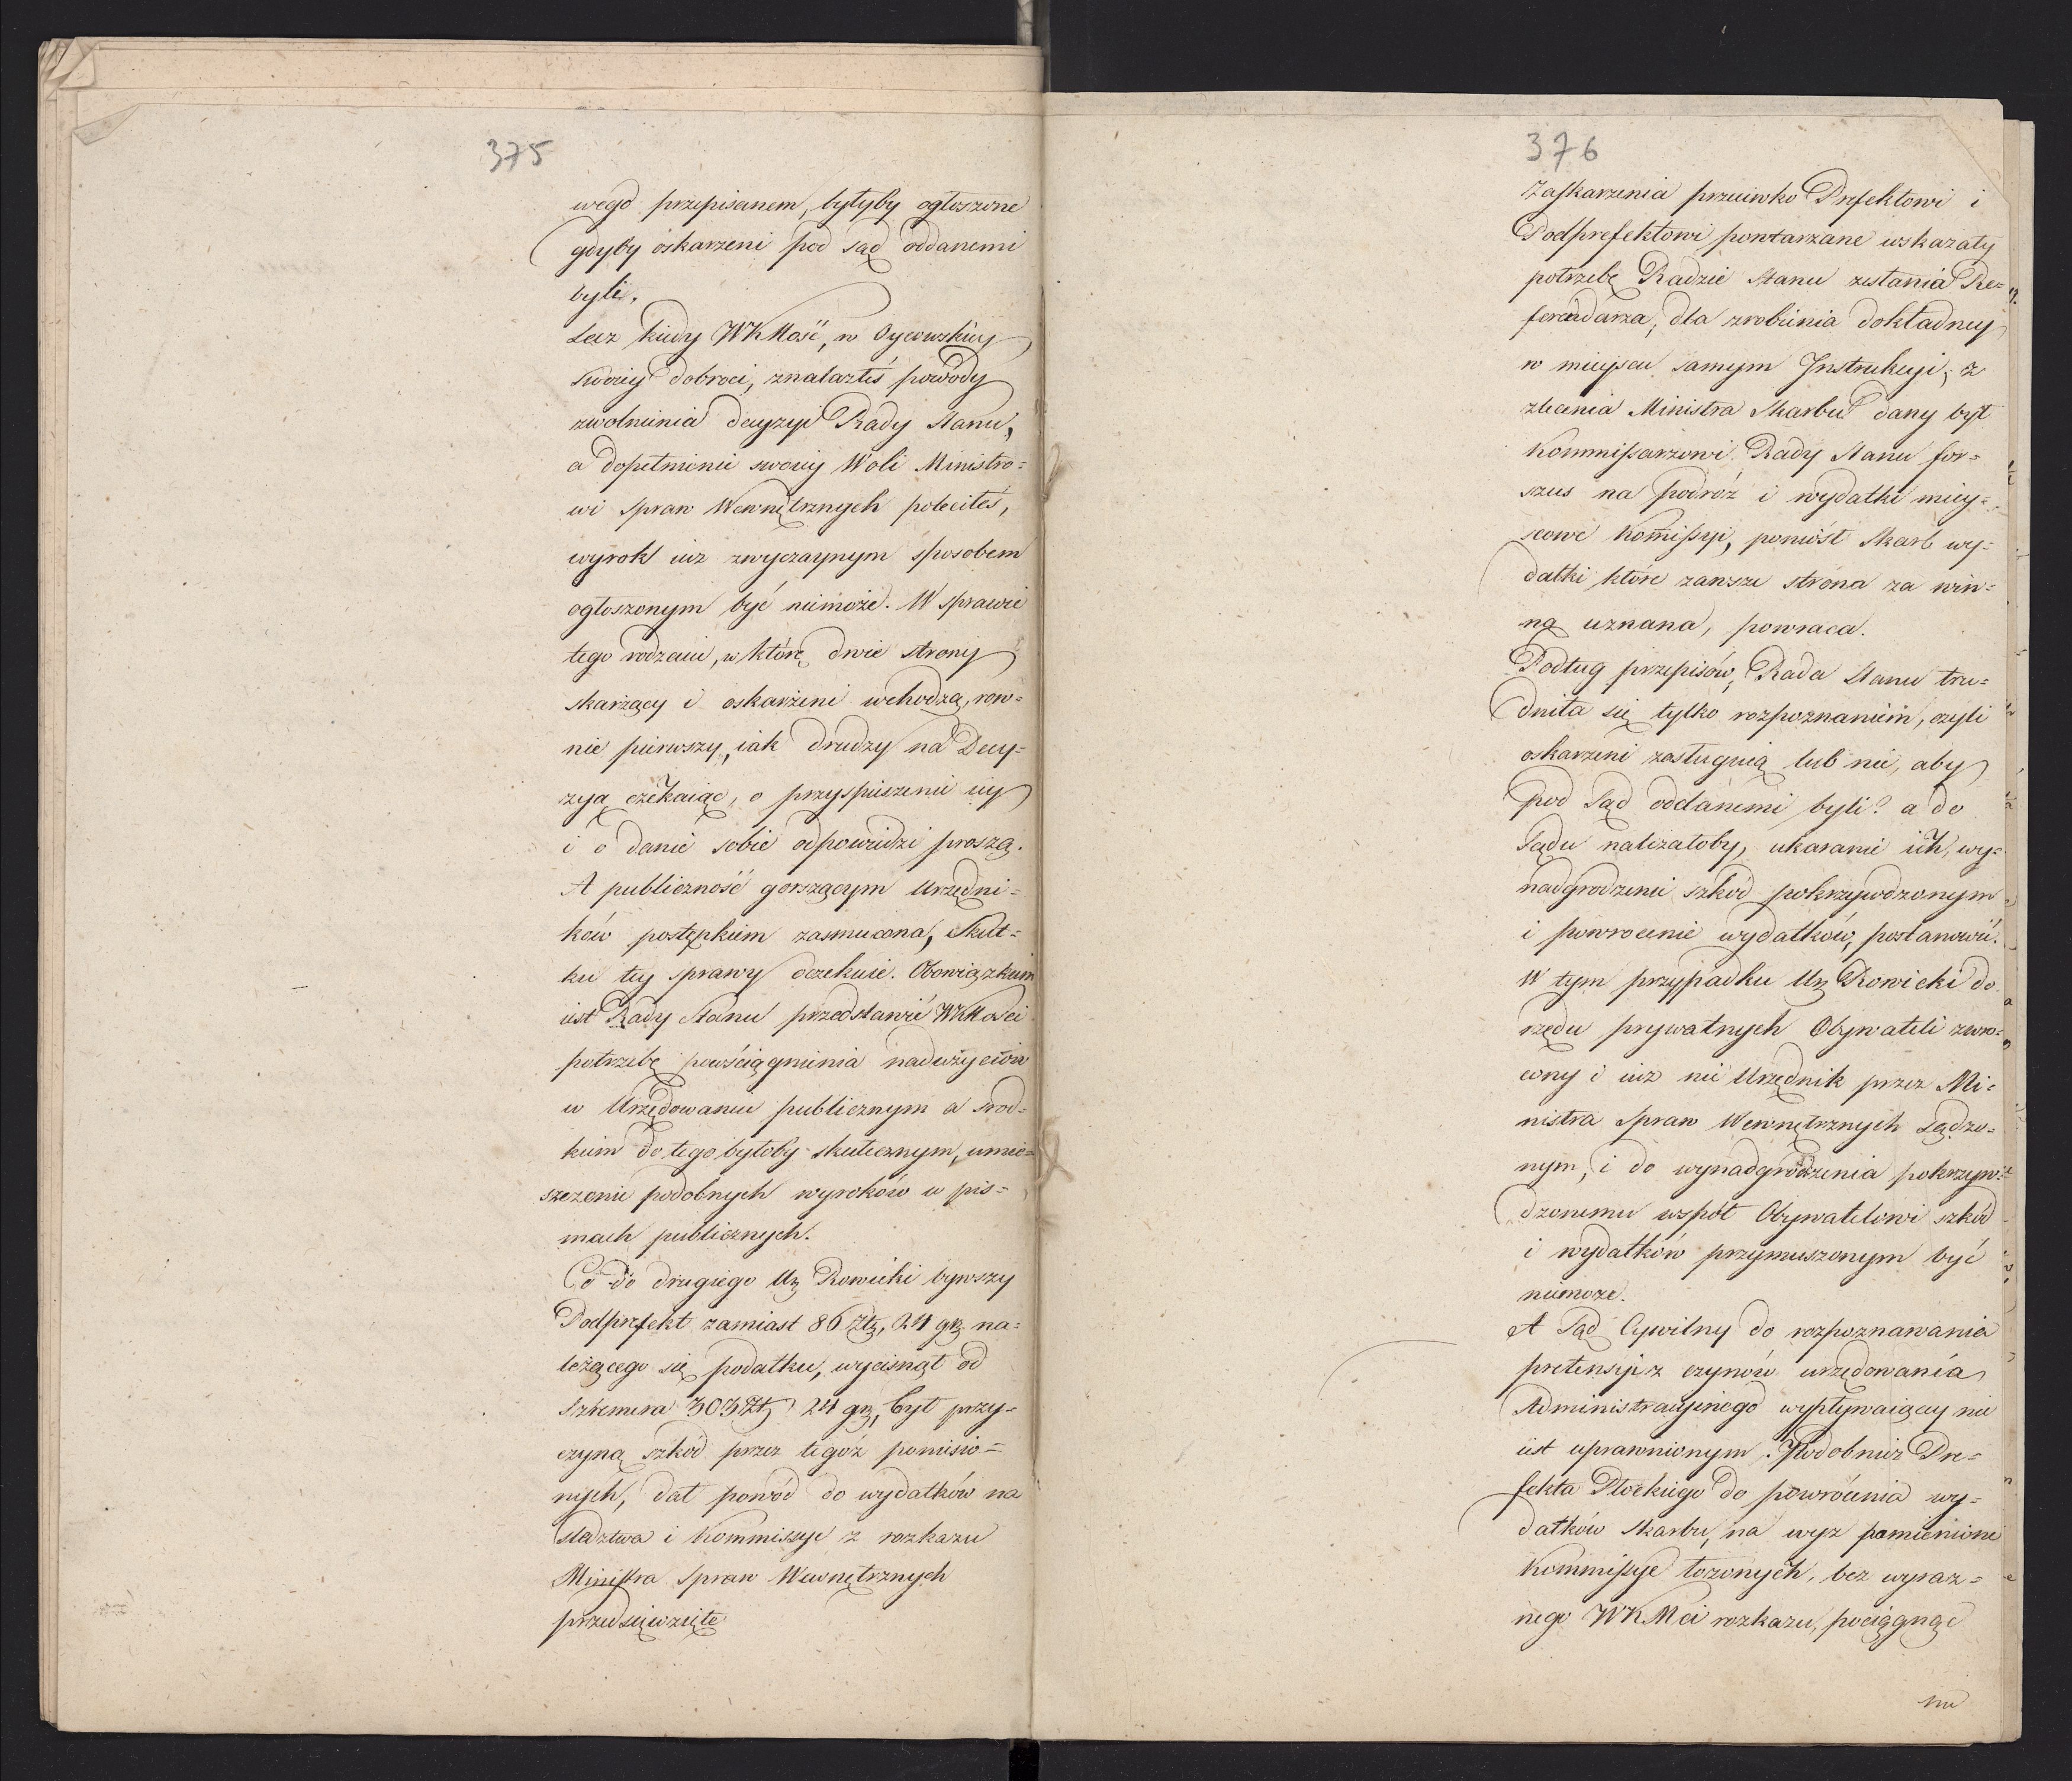 375
wego przepisanem, byłyby ogłoszone
gdyby oskarzeni pod sąd oddanemi
byli.
Lecz kiedy WKMość, w Oycowskiey
swoiey dobroci, znalazłeś powody
zwolnienia decyzyi Rady Stanu,
a dopełnienie swoiey Woli Ministro=
wi Spraw Wewnętrznych poleciłeś,
wyrok iuz zwyczaynym sposobem
ogłoszonym być niemoże. W sprawie
tego rodzaiu, w którę dwie strony
skarzący i oskarżeni wchodzą, row=
nie pierwszy, iak drudzy na Decy=
zyą czekaiąc, o przyspieszenie iey
i o danie sobie odpowiedzi proszą.
A publiczność gorszącym Urzędni=
ków postępkiem zasmucona, Skut=
ku tey sprawy oczekuie. Obowiązkiem
iest Rady Stanu przedstawić WKMości
potrzebę powściągnienia nadużyciów
w Urzędowaniu publicznym a srod=
kiem do tego byłoby skutecznym, umie=
szczenie podobnych wyroków w pis=
mach publicznych.
Co do drugiego Ur. Rowicki bywszy
Podprefekt zamiast 86 Złł, 24 gr. na=
leżącego się podatku, wycisnął od
Szkemera 303 Zł 24 gr, był przy=
czyną szkód przez tegóż poniesio=
nych, dał powód do wydatków na
sledztwa i Kommissye z rozkazu
Ministra Spraw Wewnętrznych
przedsięwzięte
376
Zaskarzenia przeciwko Prefektowi i
Podprefektowi powtarzane wskazały
potrzebę Radzie Stanu zesłania Re=
ferendarza, dla zrobienia dokładney
w mieyscu samym Instrukcyi; z
zlecenia Ministra Skarbu dany był
Kommissarzowi Rady Stanu for=
szus na podróż i wydatki miey=
scowe Komissyi, poniósł Skarb wy=
datki które zawsze strona za win=
ną uznana, powraca.
Podług przepisów, Rada Stanu tru=
dniła się tylko rozpoznaniem, czyli
oskarzeni zasługuią lub nie, aby
pod Sąd oddanemi byli? a do
Sądu należałoby, ukaranie ich, wy=
nadgrodzenie szkód pokrzywdzonym
i powrocenie wydatków, postanowić.
W tym przypadku Ur Rowicki do
rzędu prywatnych Obywateli zwró=
cony i iuz nie Urzędnik przez Mi=
nistra Spraw Wewnętrznych Sądzo=
nym, i do wynadgrodzenia pokrzyw=
dzonemu współ Obywatelowi szkód
i wydatków przymuszonym być
niemoże.
A Sąd Cywilny do rozpoznawania
pretensyi z czynów urzędowania
Administracyinego wypływaiącey nie
iest uprawnionym. Podobnież Pre=
fekta Płockiego do powrócenia wy=
datków Skarbu, na wyz pomienione
Kommissye łozonych, bez wyraz=
nego WKMci rozkazu, pociągnąć
nie